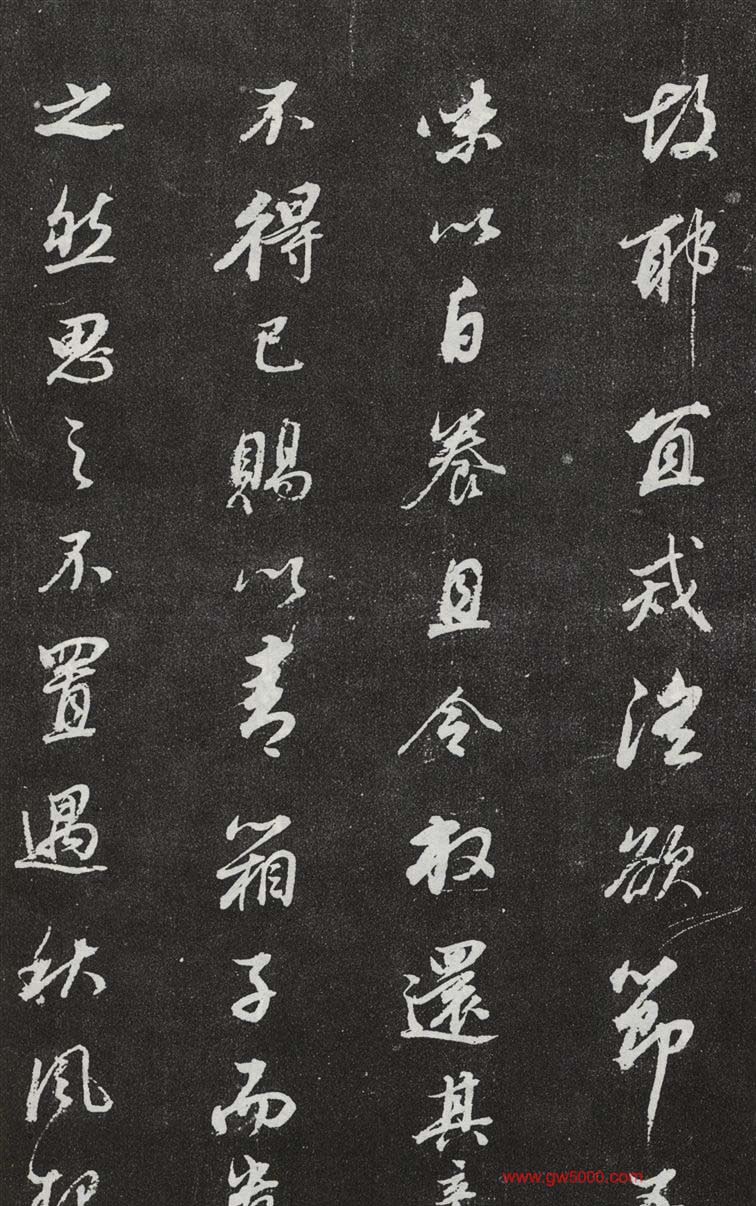 故耶宜戒淫欲節
味以自养且令叔還其
不得已賜以青箱子而
之然思之不置遇秋風
www.gw5000.com